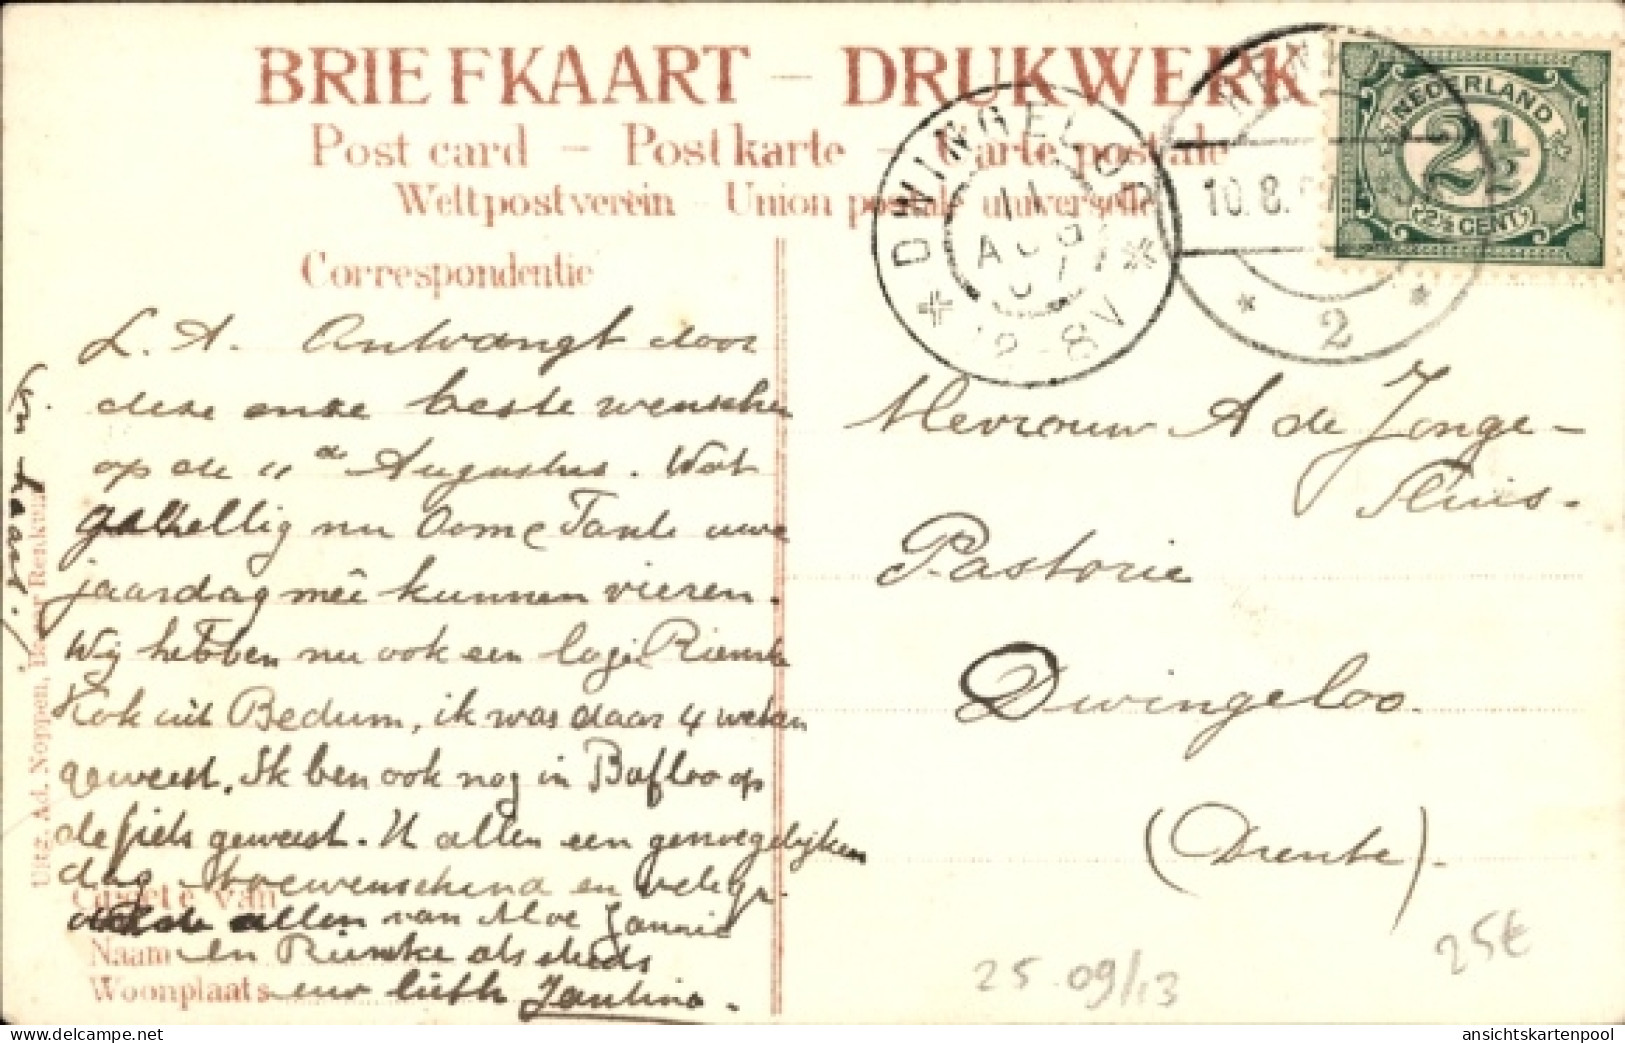 BRIEFKAART – DRUKWERK
Post card – Postkarte – Carte postale
Weltpostverein – Union postale universelle
Correspondentie
DWINGELOO
11
AUG
07
8V
10.8.07
2
NEDERLAND
2½
2½ CENT
L. A. Ontvangt door
deze onze beste wenschen
op de 11de Augustus. Wat
gezellig nu Oom & Tante uwe
jaardag meê kunnen vieren.
Wij hebben nu ook een logé Rienske
Kok uit Bedum, ik was daar 4 weken
geweest. Ik ben ook nog in Bafloo op
de fiets geweest. U allen een genoegelijken
dag toewenschend en veel gr.
allen van Moe Jannie
en Rienske als steeds
uw liefh Jantina.
en haar
Groete van
Naam
Woonplaats
Uitg. Ad. Noppen, Renkum
Mevrouw A de Jonge-
Sluis.
Pastorie
Dwingeloo.
(Drente).
25.09/13
25€
ansichtskartenpool